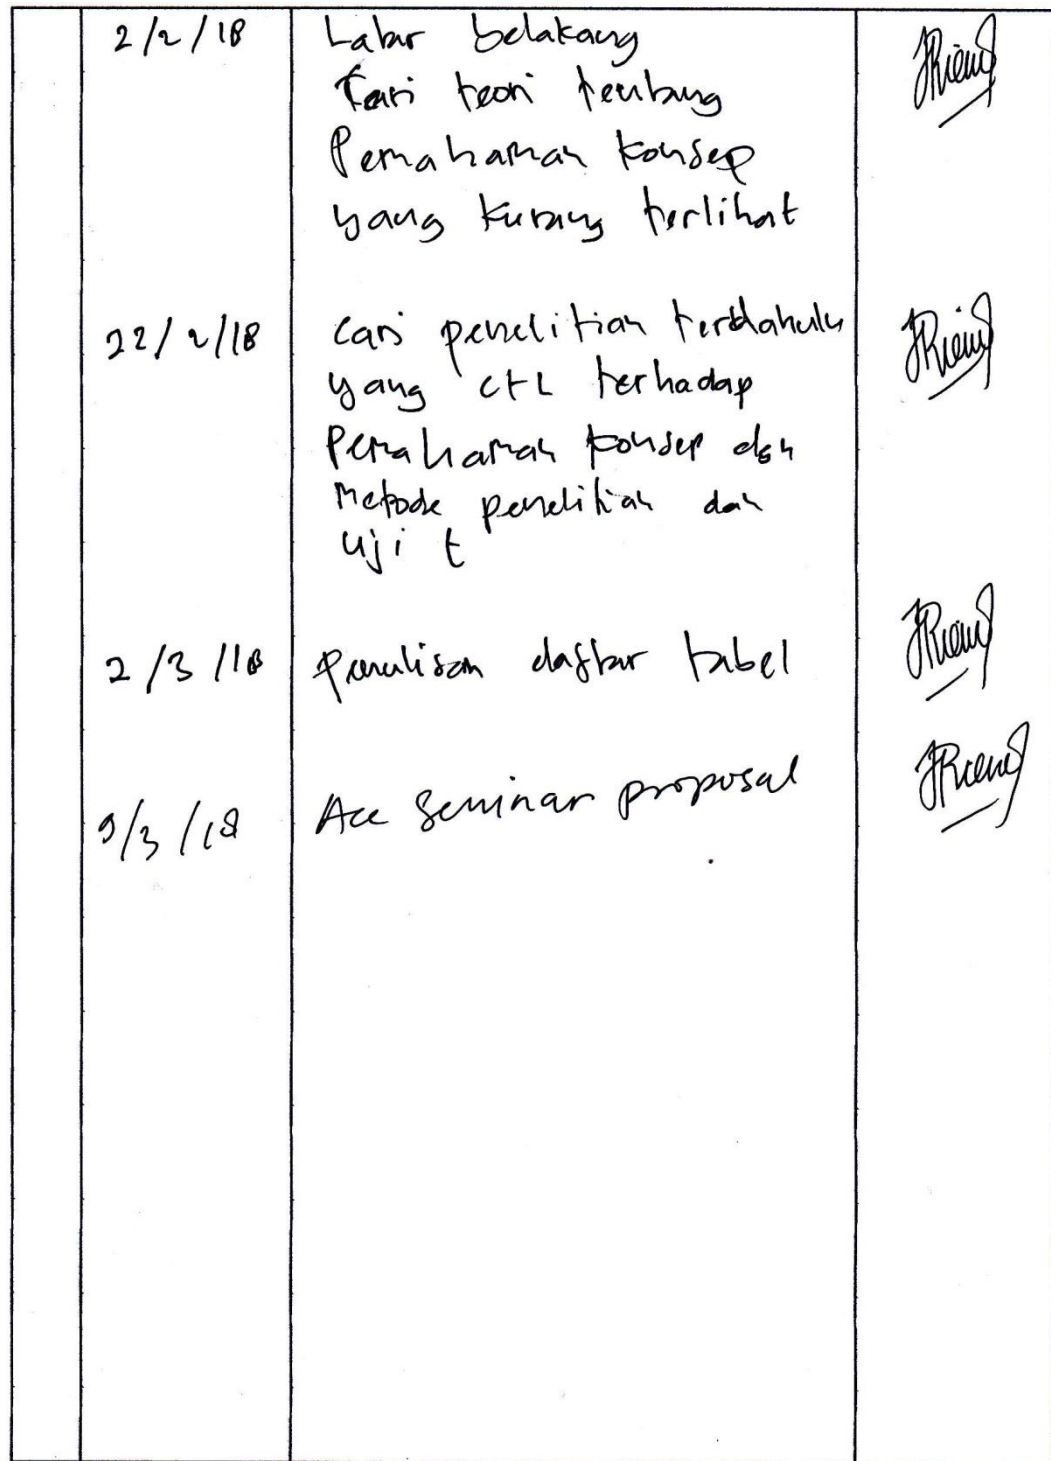 2/2/18 Latar belakang
Cari teori tentang
Pemahaman konsep
yang kurang terlihat
22/2/18 Cari penelitian terdahulu
yang CTL terhadap
Pemahaman konsep dan
Metode penelitian dan
uji t
2/3/18 penulisan daftar tabel
9/3/18 Acc Seminar proposal